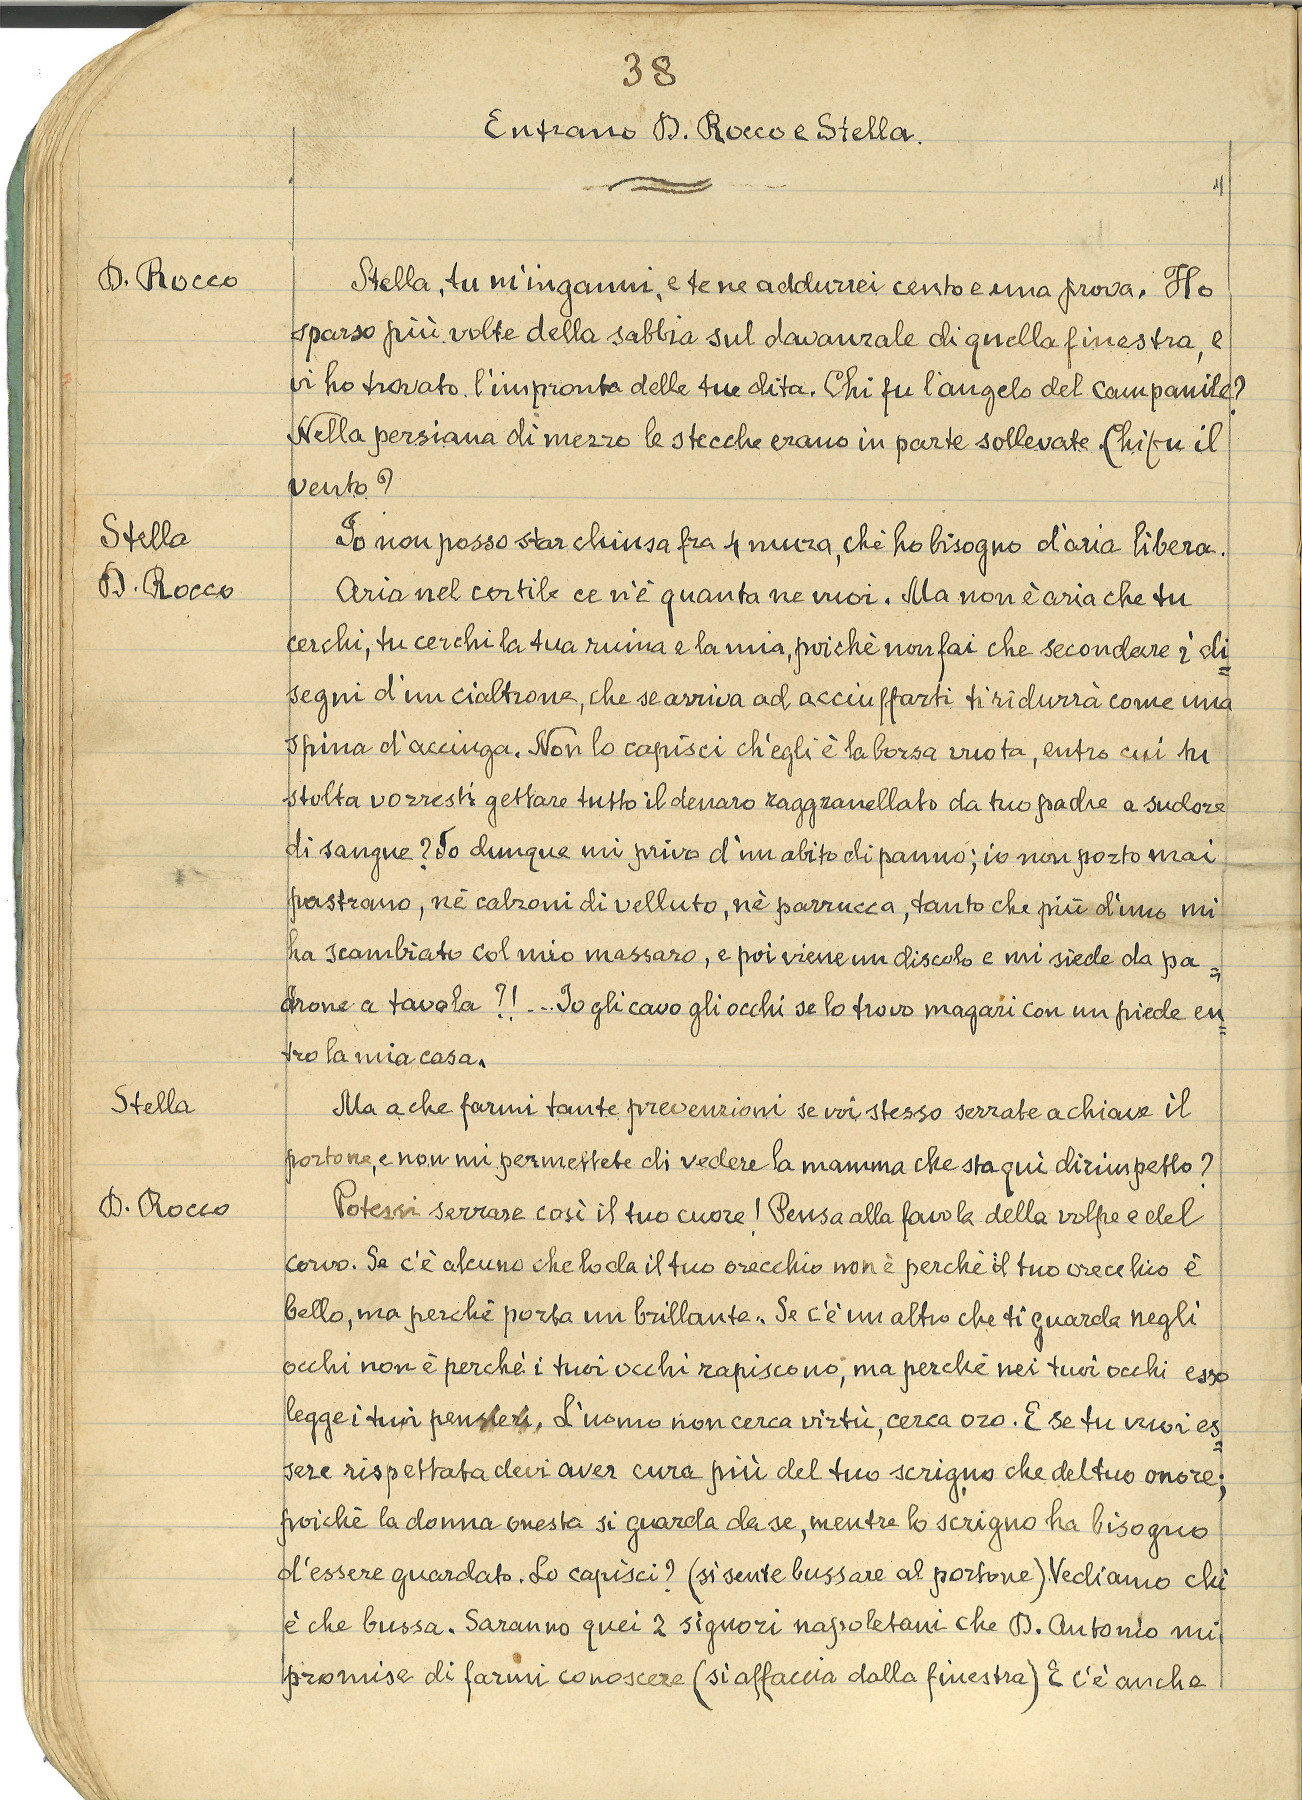 38
Entrano D. Rocco e Stella.
D. Rocco Stella, tu m'inganni, e te ne addurrei cento e una prova. Ho
sparso più volte della sabbia sul davanzale di quella finestra, e
vi ho trovato l'impronta delle tue dita. Chi fu l'angelo del campanile?
Nella persiana di mezzo le stecche erano in parte sollevate. Chi fu il
vento?
Stella Io non posso star chiusa fra 4 mura, chè ho bisogno d'aria libera.
D. Rocco Aria nel cortile ce n'è quanta ne vuoi. Ma non è aria che tu
cerchi, tu cerchi la tua ruina e la mia, poichè non fai che secondare i di=
segni d'un cialtrone, che se arriva ad acciuffarti ti ridurrà come una
spina d'acciuga. Non lo capisci ch'egli è la borsa vuota, entro cui tu
stolta vorresti gettare tutto il denaro raggranellato da tuo padre a sudore
di sangue? Io dunque mi privo d'un abito di panno; io non porto mai
pastrano, nè calzoni di velluto, nè parrucca, tanto che più d'uno mi
ha scambiato col mio massaro, e poi viene un discolo e mi siede da pa=
drone a tavola?! ... Io gli cavo gli occhi se lo trovo magari con un piede en=
tro la mia casa.
Stella Ma a che farmi tante prevenzioni se voi stesso serrate a chiave il
portone, e non mi permettete di vedere la mamma che sta quì dirimpetto?
D. Rocco Potessi serrare così il tuo cuore! Pensa alla favola della volpe e del
corvo. Se c'è alcuno che loda il tuo orecchio non è perchè il tuo orecchio è
bello, ma perchè porta un brillante. Se c'è un altro che ti guarda negli
occhi non è perchè i tuoi occhi rapiscono, ma perchè nei tuoi occhi esso
legge i tuoi pensieri. L'uomo non cerca virtù, cerca oro. E se tu vuoi es=
sere rispettata devi aver cura più del tuo scrigno che del tuo onore;
poichè la donna onesta si guarda da se, mentre lo scrigno ha bisogno
d'essere guardato. Lo capisci? (si sente bussare al portone) Vediamo chi
è che bussa. Saranno quei 2 signori napoletani che D. Antonio mi
promise di farmi conoscere (si affaccia dalla finestra) E c'è anche